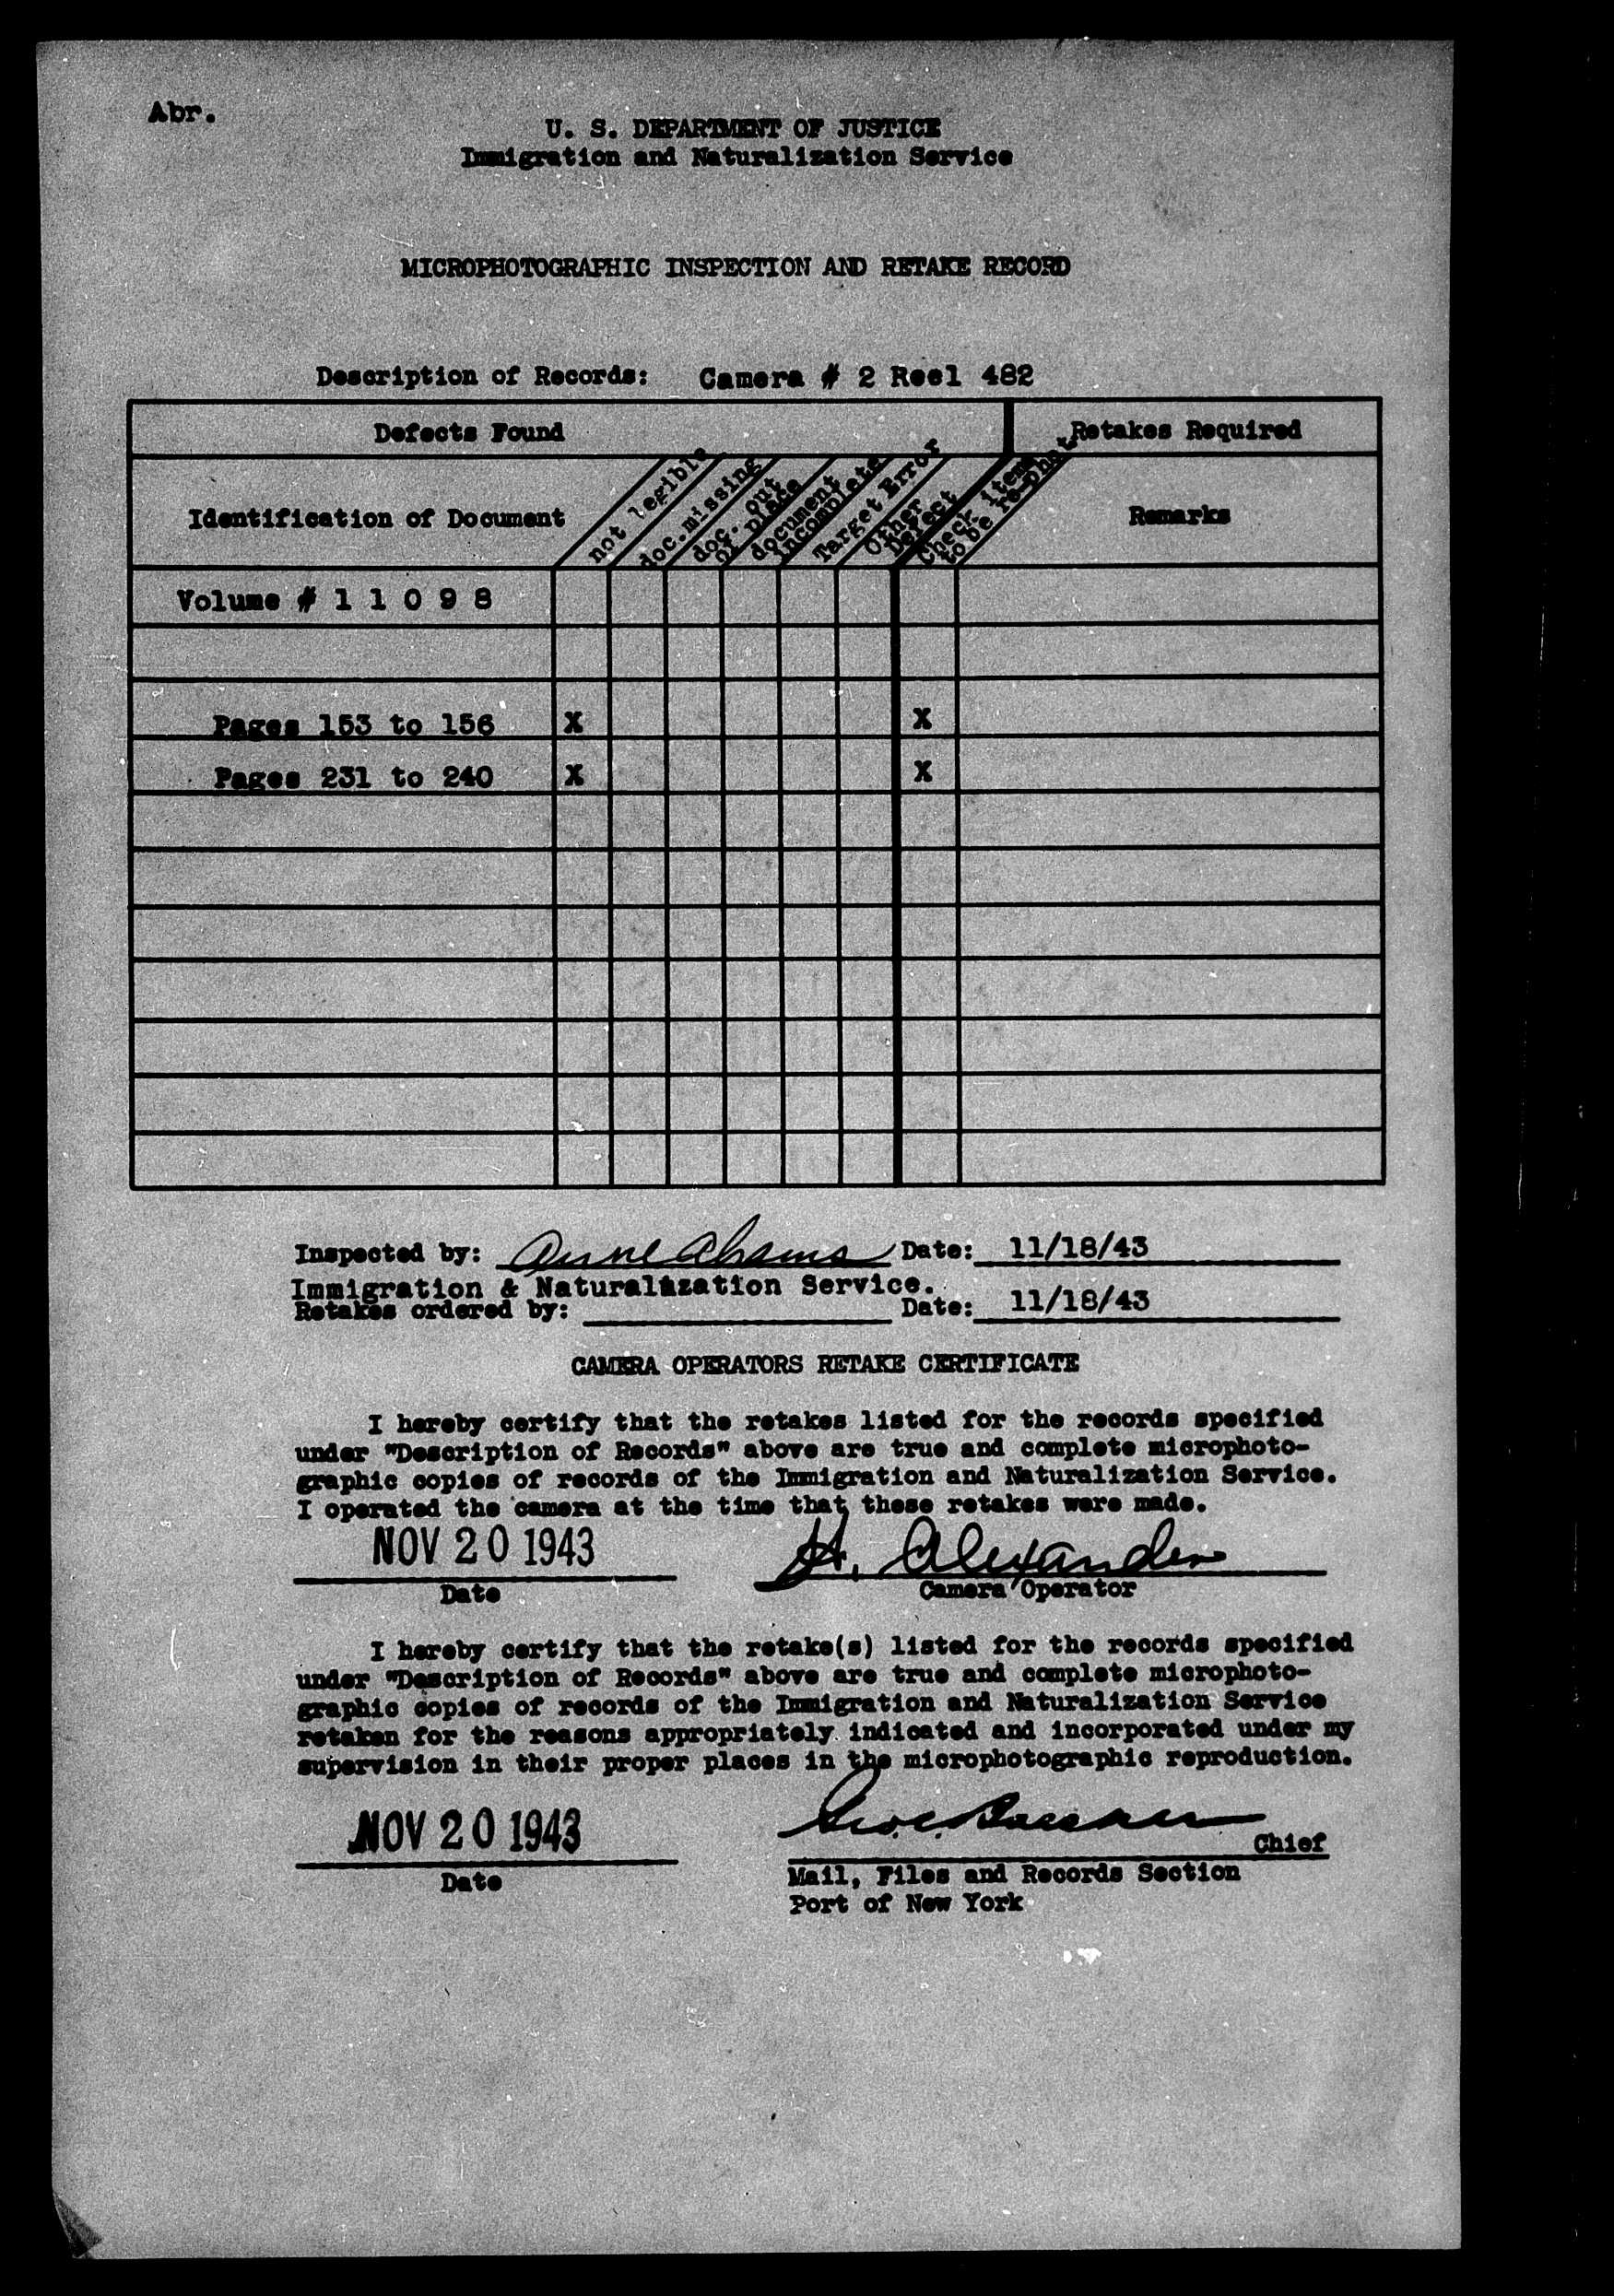 Abr.
U. S. DEPARTMENT OF JUSTICE
Immigration and Naturalization Service
MICROPHOTOGRAPHIC INSPECTION AND RETAKE RECORD
Description of Records: Camera # 2 Reel 482
Defects Found
Retakes Required
Identification of Document
not legible
doc.missing
doc. out
of place
document
incomplete
Target Error
Other
Defect
Check items
to be re-phot.
Remarks
Volume # 1 1 0 9 8
Pages 153 to 156 X X
Pages 231 to 240 X X
Inspected by: Anne Abrams Date: 11/18/43
Immigration & Naturalization Service.
Retakes ordered by: Date: 11/18/43
CAMERA OPERATORS RETAKE CERTIFICATE
I hereby certify that the retakes listed for the records specified
under "Description of Records" above are true and complete microphoto-
graphic copies of records of the Immigration and Naturalization Service.
I operated the camera at the time that these retakes were made.
NOV 20 1943 H. Alexander
Date Camera Operator
I hereby certify that the retake(s) listed for the records specified
under "Description of Records" above are true and complete microphoto-
graphic copies of records of the Immigration and Naturalization Service
retaken for the reasons appropriately indicated and incorporated under my
supervision in their proper places in the microphotographic reproduction.
NOV 20 1943
Chief
Date Mail, Files and Records Section
Port of New York